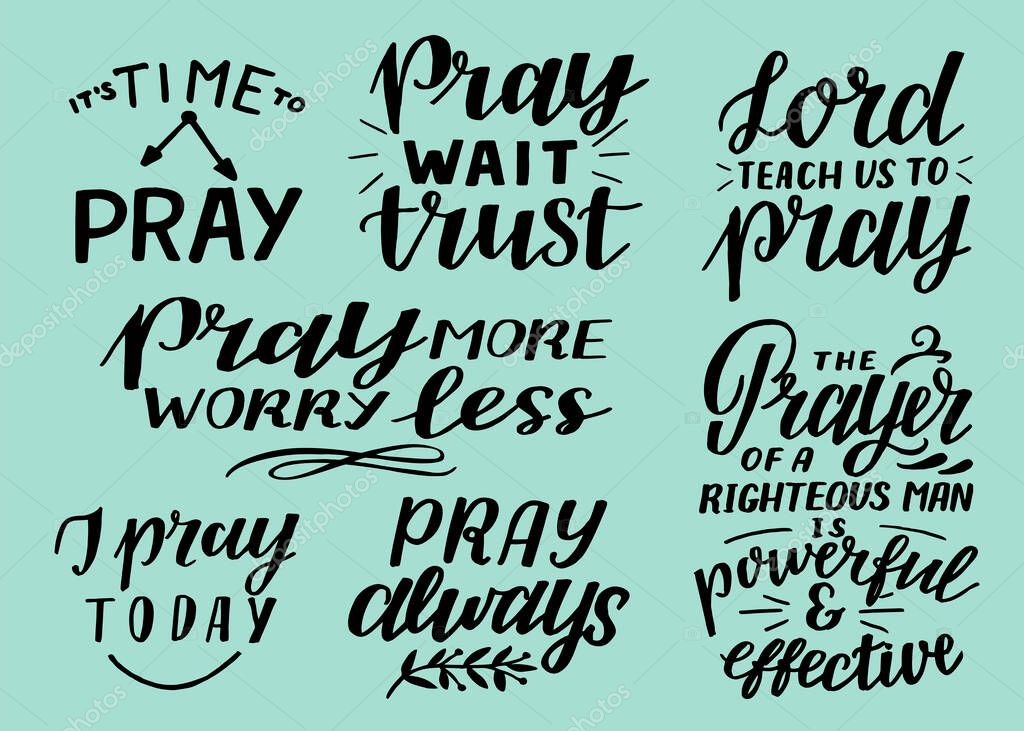 IT'S TIME TO
PRAY
pray
WAIT
trust
Lord
TEACH US TO
pray
pray MORE
WORRY less
THE
Prayer
OF A
RIGHTEOUS MAN
IS
powerful
&
effective
I pray
TODAY
PRAY
always
depositphotos